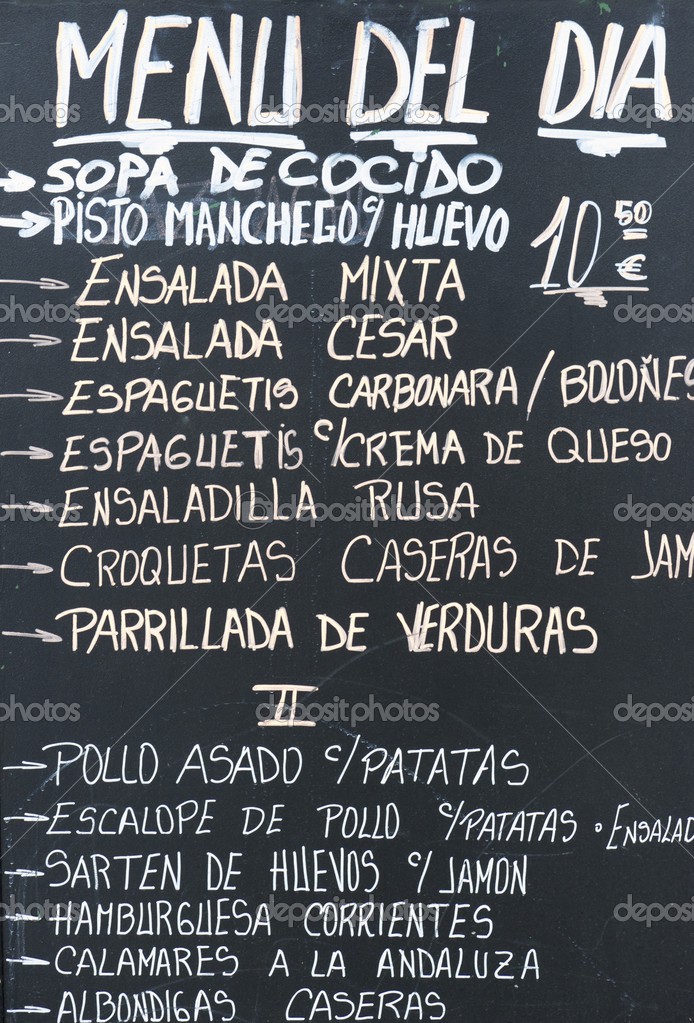 MENU DEL DIA
SOPA DE COCIDO
PISTO MANCHEGO C/ HUEVO
10 50 €
ENSALADA MIXTA
ENSALADA CESAR
ESPAGUETIS CARBONARA / BOLOÑES
ESPAGUETIS C/CREMA DE QUESO
ENSALADILLA RUSA
CROQUETAS CASERAS DE JAM
PARRILLADA DE VERDURAS
II
POLLO ASADO C/PATATAS
ESCALOPE DE POLLO C/PATATAS o ENSALAD
SARTEN DE HUEVOS C/ JAMON
HAMBURGUESA CORRIENTES
CALAMARES A LA ANDALUZA
ALBONDIGAS CASERAS
depositphotos